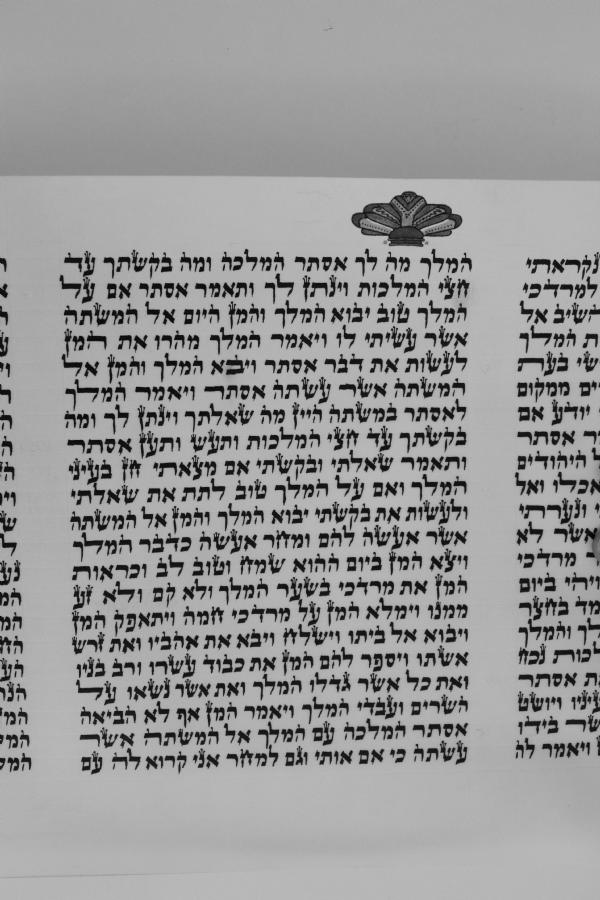 נקראתי
למרדכי
השיב אל
המלך
בעת
ממקום
יודע אם
אסתר
היהודים
אכלו ואל
ונערתי
אשר לא
מרדכי
ויהי ביום
בחצר
והמלך
נכח
אסתר
עיניו ויושט
בידו
ויאמר לה
המלך מה לך אסתר המלכה ומה בקשתך עד
חצי המלכות וינתן לך ותאמר אסתר אם על
המלך טוב יבוא המלך והמן היום אל המשתה
אשר עשיתי לו ויאמר המלך מהרו את המן
לעשות את דבר אסתר ויבא המלך והמן אל
המשתה אשר עשתה אסתר ויאמר המלך
לאסתר במשתה היין מה שאלתך וינתן לך ומה
בקשתך עד חצי המלכות ותעש ותען אסתר
ותאמר שאלתי ובקשתי אם מצאתי חן בעיני
המלך ואם על המלך טוב לתת את שאלתי
ולעשות את בקשתי יבוא המלך והמן אל המשתה
אשר אעשה להם ומחר אעשה כדבר המלך
ויצא המן ביום ההוא שמח וטוב לב וכראות
המן את מרדכי בשער המלך ולא קם ולא זע
ממנו וימלא המן על מרדכי חמה ויתאפק המן
ויבוא אל ביתו וישלח ויבא את אהביו ואת זרש
אשתו ויספר להם המן את כבוד עשרו ורב בניו
ואת כל אשר גדלו המלך ואת אשר נשאו על
השרים ועבדי המלך ויאמר המן אף לא הביאה
אסתר המלכה עם המלך אל המשתה אשר
עשתה כי אם אותי וגם למחר אני קרוא לה עם